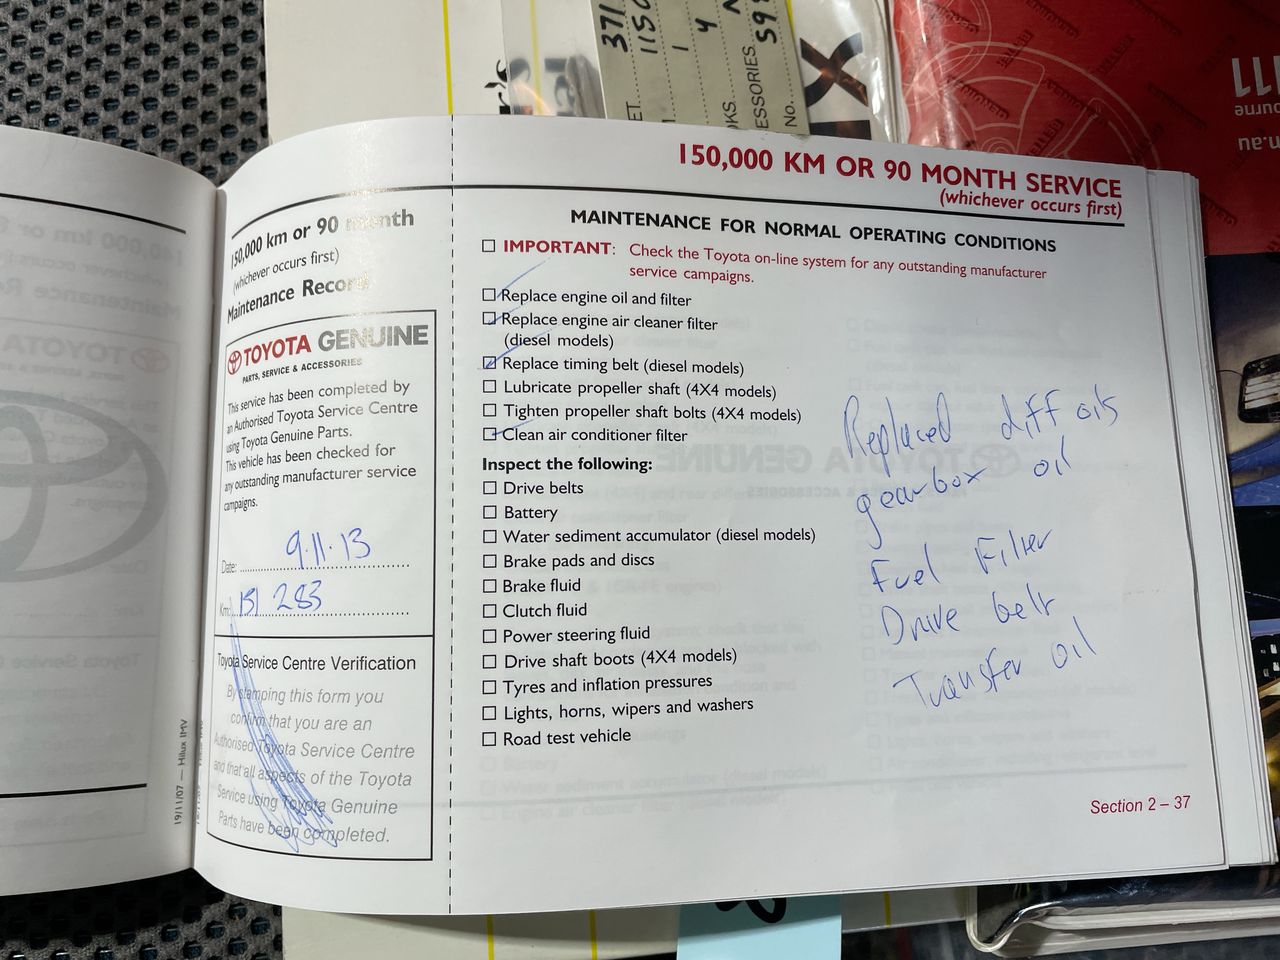 371
1150
1
4
598
ET
OKS.
ESSORIES.
No.
150,000 km or 90 month
(whichever occurs first)
Maintenance Record
TOYOTA GENUINE
PARTS, SERVICE & ACCESSORIES
This service has been completed by
an Authorised Toyota Service Centre
using Toyota Genuine Parts.
This vehicle has been checked for
any outstanding manufacturer service
campaigns.
Date: 9.11.13
Km: 151 283
Toyota Service Centre Verification
By stamping this form you
confirm that you are an
Authorised Toyota Service Centre
and that all aspects of the Toyota
Service using Toyota Genuine
Parts have been completed.
19/11/07 — Hilux IMV
150,000 KM OR 90 MONTH SERVICE
(whichever occurs first)
MAINTENANCE FOR NORMAL OPERATING CONDITIONS
IMPORTANT: Check the Toyota on-line system for any outstanding manufacturer
service campaigns.
Replace engine oil and filter
Replace engine air cleaner filter
(diesel models)
Replace timing belt (diesel models)
Lubricate propeller shaft (4X4 models)
Tighten propeller shaft bolts (4X4 models)
Clean air conditioner filter
Inspect the following:
Drive belts
Battery
Water sediment accumulator (diesel models)
Brake pads and discs
Brake fluid
Clutch fluid
Power steering fluid
Drive shaft boots (4X4 models)
Tyres and inflation pressures
Lights, horns, wipers and washers
Road test vehicle
Replaced diff oils
gearbox oil
Fuel Filter
Drive belt
Transfer oil
Section 2 – 37